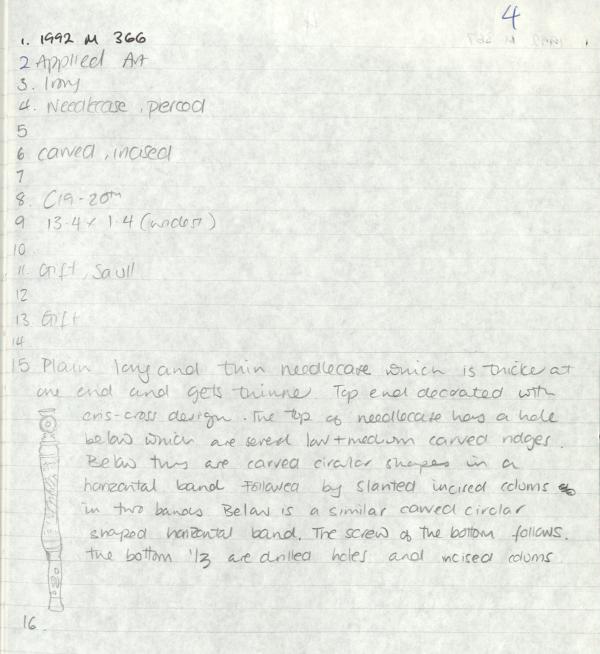 4
1. 1992 M 366
2 Applied Art
3. Ivory
4. Needlecase, period
5
6 carved, incised
7
8. C19-20th
9 13.4 x 1.4 (widest)
10
11. Gift, Saull
12
13 Gift
14
15 Plain long and thin needlecase which is thicker at
one end and gets thinner. Top end decorated with
cris-cross design. The top of needlecase has a hole
below which are several low + medium carved ridges.
Below this are carved circular shapes in a
horizontal band followed by slanted incised colums
in two bands Below is a similar carved circlar
shaped horizontal band. The screw of the bottom follows.
the bottom 1/3 are drilled holes and incised colums
16